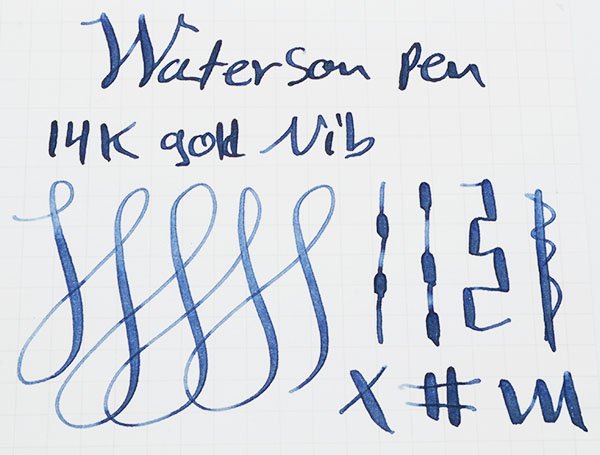 Waterson Pen
14K gold Nib
X # m